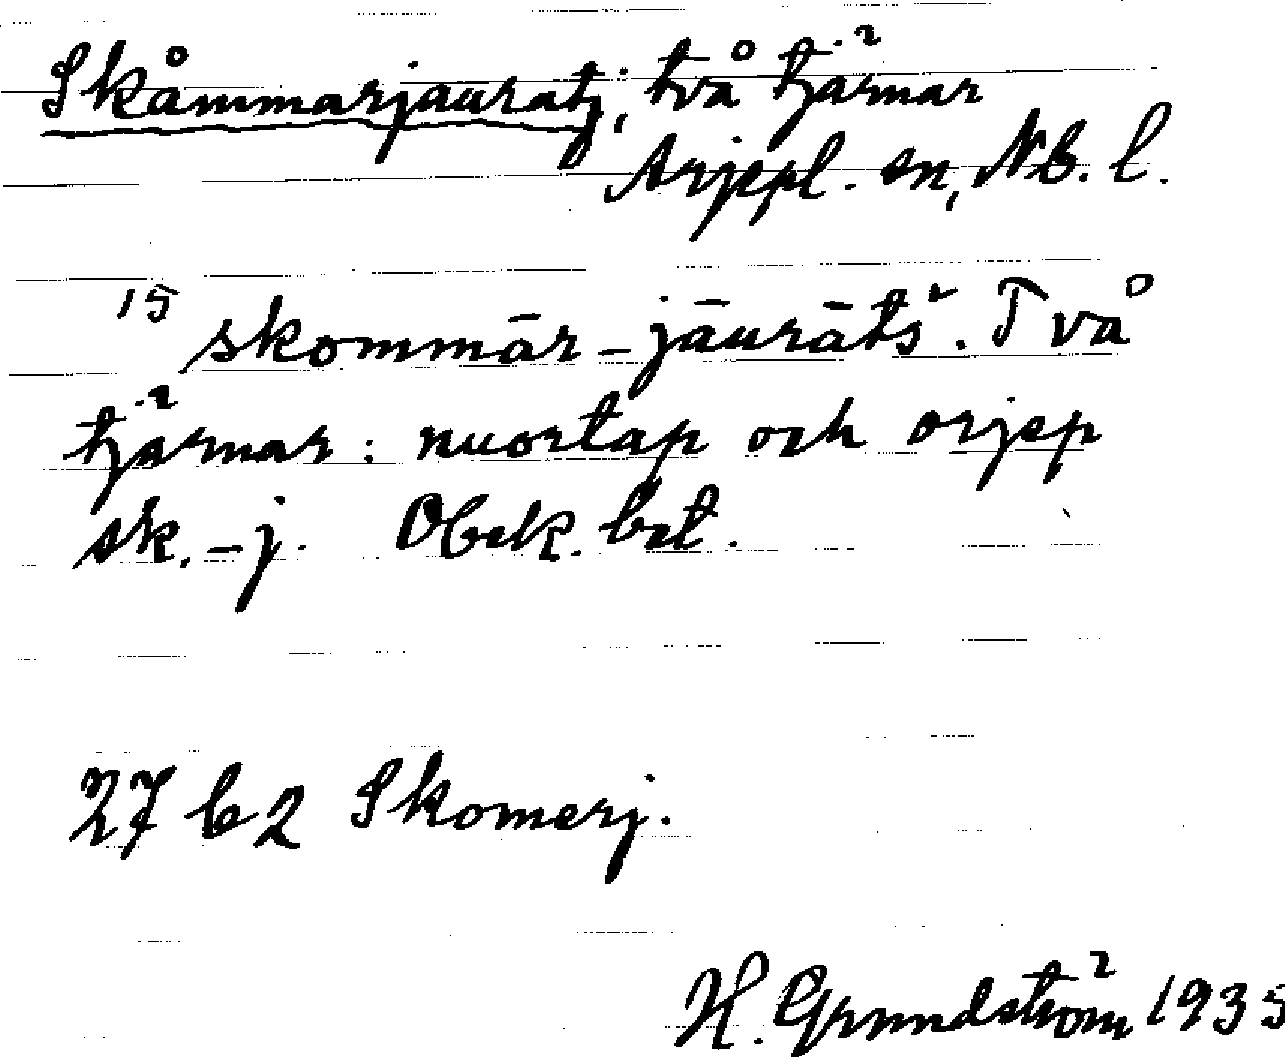 Skåmmarjauratj, två tjärnar
Arjepl. sn, Nb. l.
15 skommār-jāurātš. Två
tjärnar: nuortap och orjep
sk.-j. Obek. bet.
27 b2 Skomerj.
H. Grundström 1935